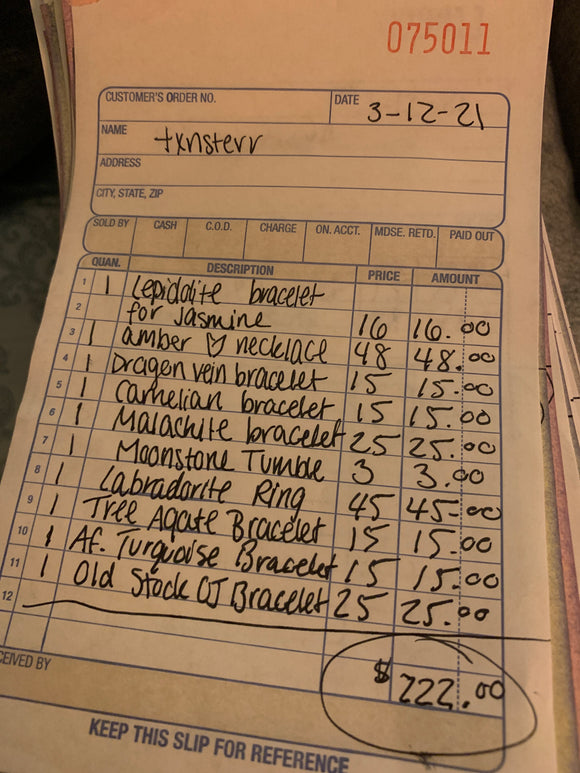 075011
CUSTOMER'S ORDER NO. DATE 3-12-21
NAME txnsterr
ADDRESS
CITY, STATE, ZIP
SOLD BY CASH C.O.D. CHARGE ON. ACCT. MDSE. RETD. PAID OUT
QUAN. DESCRIPTION PRICE AMOUNT
1 1 Lepidolite bracelet
2 for Jasmine 16 16.00
3 1 amber ♡ necklace 48 48.00
4 1 Dragon vein bracelet 15 15.00
5 1 Carnelian bracelet 15 15.00
6 1 Malachite bracelet 25 25.00
7 1 Moonstone Tumble 3 3.00
8 1 Labradorite Ring 45 45.00
9 1 Tree Agate Bracelet 15 15.00
10 1 Af. Turquoise Bracelet 15 15.00
11 1 Old Stock OJ Bracelet 25 25.00
12
$222.00
CEIVED BY
KEEP THIS SLIP FOR REFERENCE